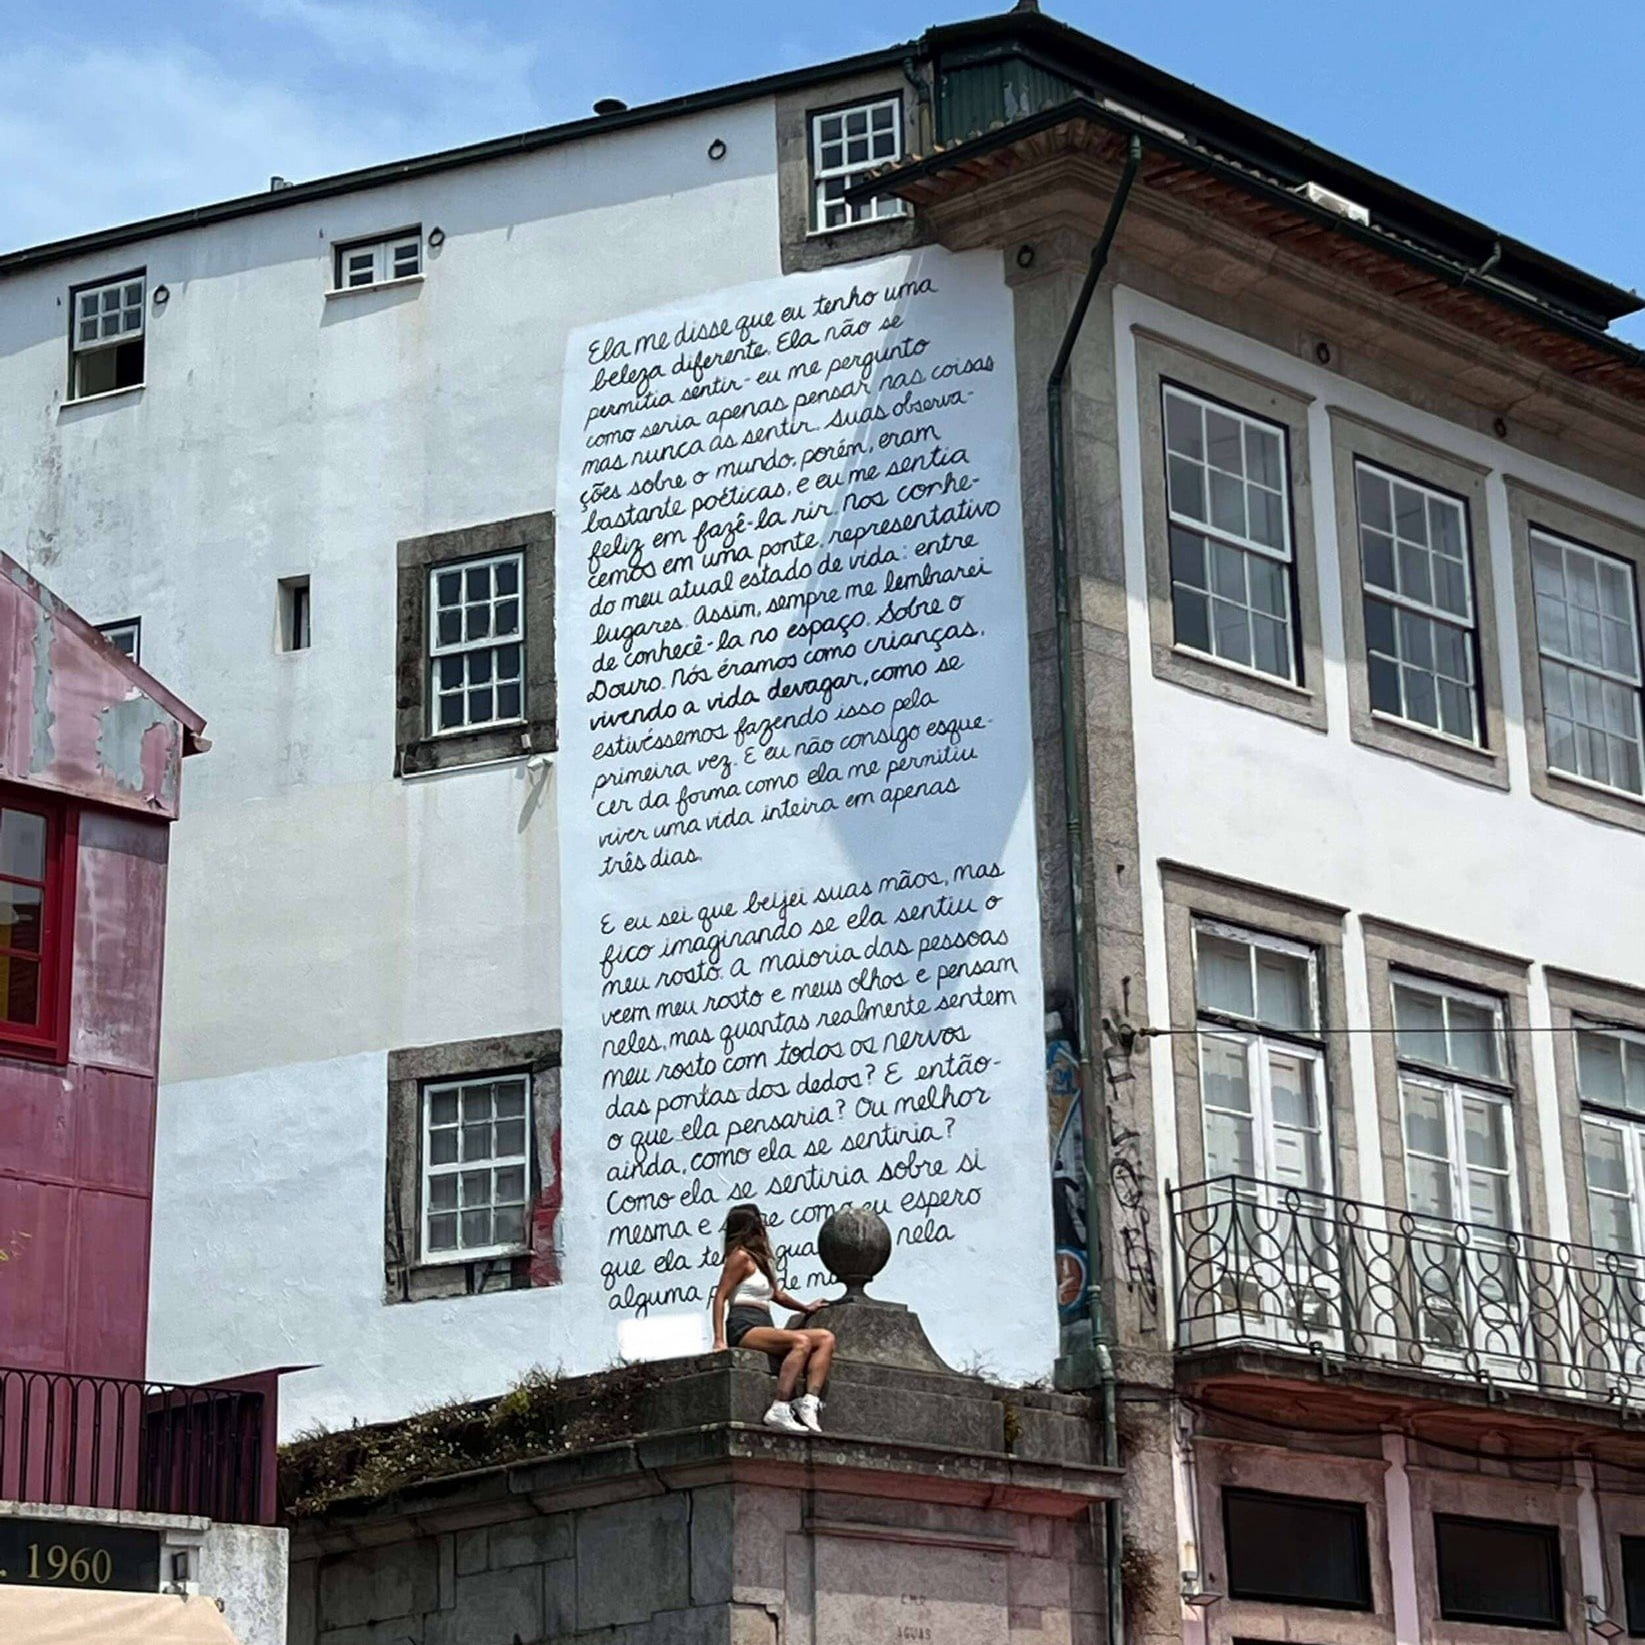 Ela me disse que eu tenho uma
beleza diferente. Ela não se
permitia sentir - eu me pergunto
como seria apenas pensar nas coisas
mas nunca as sentir. Suas observa-
ções sobre o mundo, porém, eram
bastante poéticas, e eu me sentia
feliz em fazê-la rir. Nos conhe-
cemos em uma ponte, representativo
do meu atual estado de vida: entre
lugares. Assim, sempre me lembrarei
de conhecê-la no espaço. Sobre o
Douro. Nós éramos como crianças,
vivendo a vida devagar, como se
estivéssemos fazendo isso pela
primeira vez. E eu não consigo esque-
cer da forma como ela me permitiu
viver uma vida inteira em apenas
três dias.
E eu sei que beijei suas mãos, mas
fico imaginando se ela sentiu o
meu rosto. A maioria das pessoas
veem meu rosto e meus olhos e pensam
neles, mas quantas realmente sentem
meu rosto com todos os nervos
das pontas dos dedos? E então-
o que ela pensaria? Ou melhor
ainda, como ela se sentiria?
Como ela se sentiria sobre si
mesma e como eu espero
que ela nela
alguma de
. 1960
C.M.P.
AGUAS